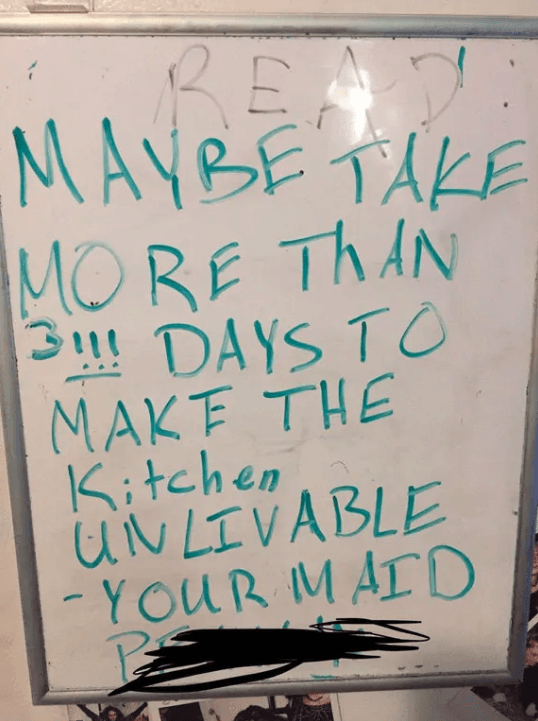 READ
MAYBE TAKE
MORE ThAN
3!!! DAYS TO
MAKE THE
Kitchen
UNLIVABLE
- YOUR MAID